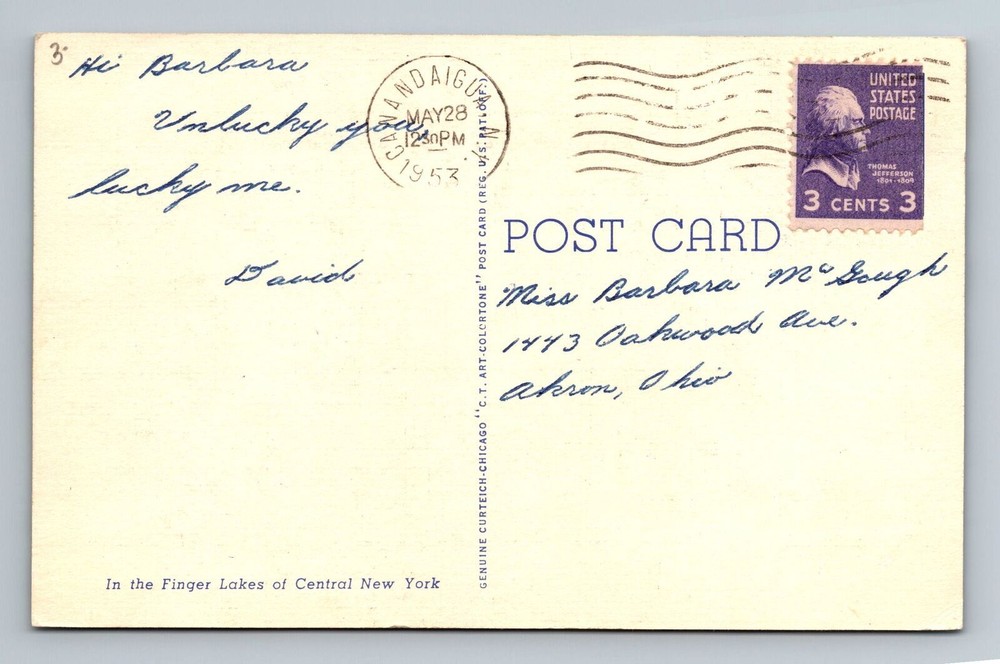 3
Hi Barbara
Unlucky you,
lucky me.
David
In the Finger Lakes of Central New York
GENUINE CURTEICH-CHICAGO "C.T. ART-COLORTONE" POST CARD (REG. U.S. PAT. OFF.)
CANANDAIGUA N.Y.
MAY 28
12 30 PM
1953
UNITED
STATES
POSTAGE
THOMAS
JEFFERSON
1801-1809
3 CENTS 3
POST CARD
Miss Barbara McGough
1443 Oakwood Ave.
Akron, Ohio